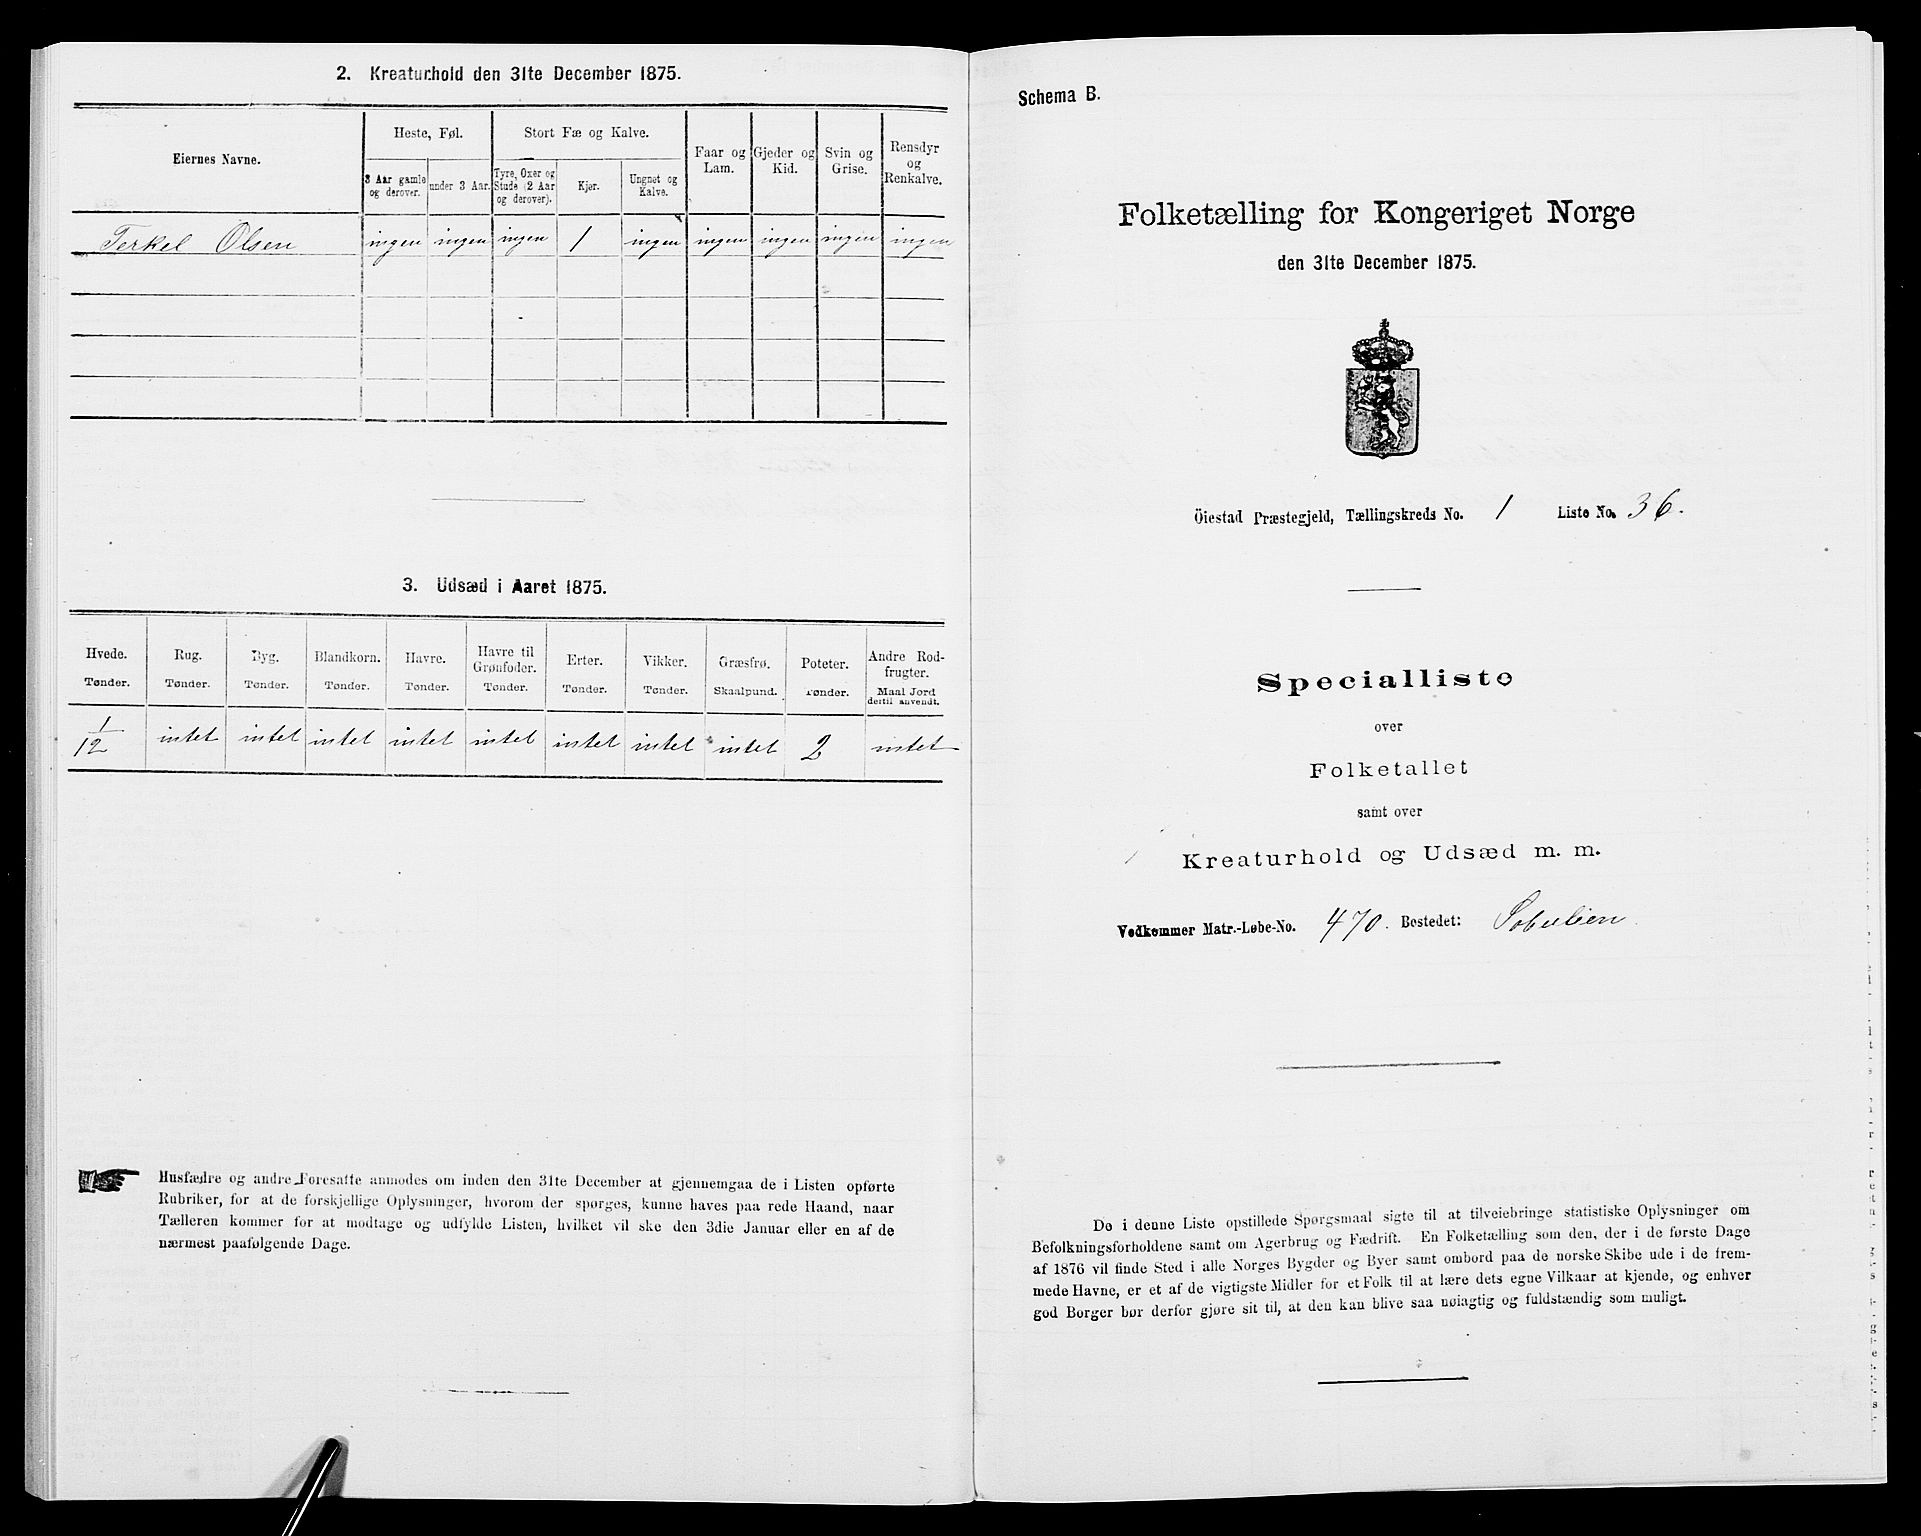 2. Kreaturhold den 31te December 1875.
Eiernes Navne.
Heste, Føl.
Stort Fæ og Kalve.
Faar og Lam.
Gjeder og Kid.
Svin og Grise.
Rensdyr og Renkalve.
3 Aar gamle og derover.
under 3 Aar.
Tyre, Oxer og Stude (2 Aar og derover).
Kjør.
Ungnet og Kalve.
Terkel Olsen ingen ingen ingen 1 ingen ingen ingen ingen ingen
3. Udsæd i Aaret 1875.
Hvede. Tønder.
Rug. Tønder.
Byg. Tønder.
Blandkorn. Tønder.
Havre. Tønder.
Havre til Grønfoder. Tønder.
Erter. Tønder.
Vikker. Tønder.
Græsfrø. Skaalpund.
Poteter. Tønder.
Andre Rodfrugter. Maal Jord dertil anvendt.
1/12 intet intet intet intet intet intet intet intet 2 intet
Husfædre og andre Foresatte anmodes om inden den 31te December at gjennemgaa de i Listen opførte
Rubriker, for at de forskjellige Oplysninger, hvorom der spørges, kunne haves paa rede Haand, naar
Tælleren kommer for at modtage og udfylde Listen, hvilket vil ske den 3die Januar eller en af de
nærmest paafølgende Dage.
Schema B.
Folketælling for Kongeriget Norge
den 31te December 1875.
Öiestad Præstegjeld, Tællingskreds No. 1 Liste No. 36.
Specialliste
over
Folketallet
samt over
Kreaturhold og Udsæd m. m.
Vedkommer Matr.-Løbe-No. 470. Bostedet:
De i denne Liste opstillede Spørgsmaal sigte til at tilveiebringe statistiske Oplysninger om
Befolkningsforholdene samt om Agerbrug og Fædrift. En Folketælling som den, der i de første Dage
af 1876 vil finde Sted i alle Norges Bygder og Byer samt ombord paa de norske Skibe ude i de frem-
mede Havne, er et af de vigtigste Midler for et Folk til at lære dets egne Vilkaar at kjende, og enhver
god Borger bør derfor gjøre sit til, at den kan blive saa nøiagtig og fuldstændig som muligt.